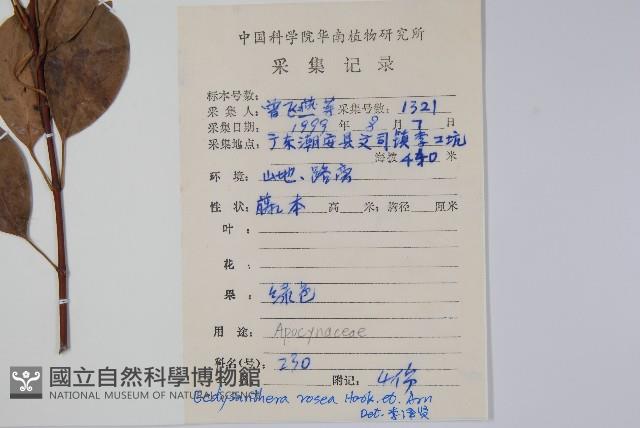 中国科学院华南植物研究所
采集记录
标本号数:
采集人: 曾飞燕等 采集号数: 1321
采集日期: 1999 年 8 月 7 日
采集地点: 广东潮安县文司镇李工坑
海拔 440 米
环境: 山地、路旁
性状: 藤本 高 米; 胸径 厘米
叶:
花:
果: 绿色
用途: Apocynaceae
科名(号): 230
附记: 4份
Ecdysanthera rosea Hook. et. Arn
Det. 李泽贤
國立自然科學博物館
NATIONAL MUSEUM OF NATURAL SCIENCE